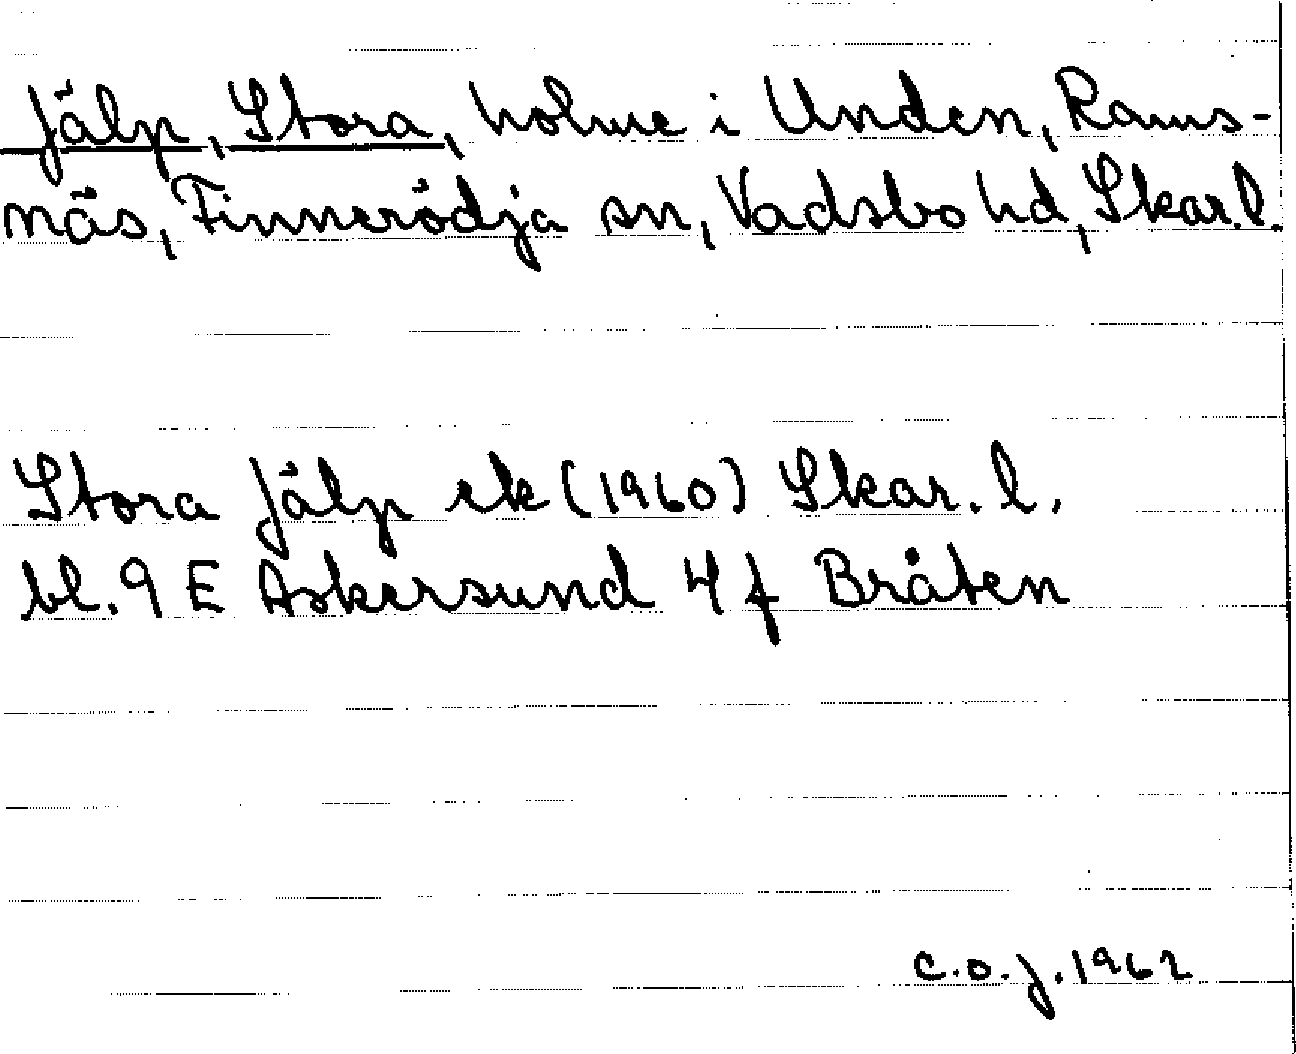 Jälp, Stora, holme i Unden, Rams-
näs, Finnerödja sn, Vadsbo hd, Skar.l.
Stora Jälp ek (1960) Skar. l.
bl. 9 E Askersund 4 f Bråten
C.O.J. 1962